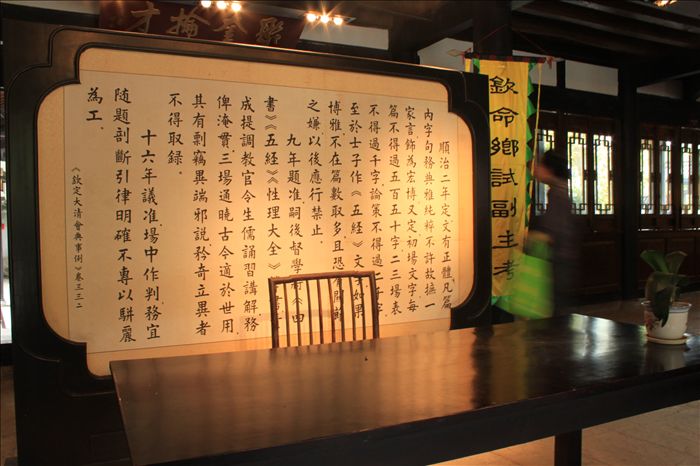 聚奎掄才
順治二年定文有正體凡篇
內字句務典雅純粹不許故摭一
家言飾為宏博又定初場文字每
篇不得過五百五十字二三場表
不得過千字論策不得過二千字
至於士子作《五經》文字如果
博雅不在篇數取多且恐有關節
之嫌以後應行禁止.
九年題准嗣後督學將《四
書》《五經》《性理大全》
成提調教官令生儒誦習講解務
俾淹貫三場通曉古今適於世用
其有剽竊異端邪說矜奇立異者
不得取錄.
十六年議准場中作判務宜
隨題剖斷引律明確不專以駢麗
為工.
《欽定大清會典事例》卷三三二
欽命鄉試副主考